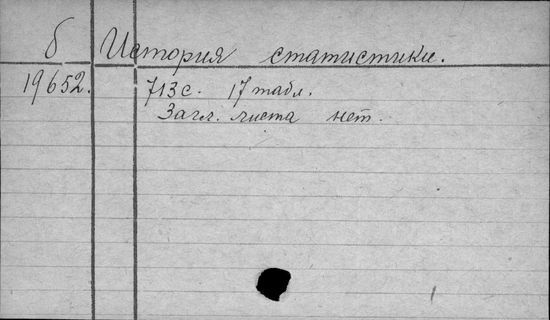 б История статистики.
19652. 713 с. 17 табл.
Загл. листа нет.